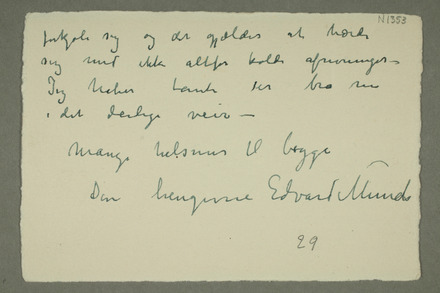 N1353
forkjøle sig og det gjælder at hærde
sig med ikke altfor kolde afrivninger –
Jeg haaber tante har bra nu
i det deilige veir –
Mange hilsener til begge
Din hengivne Edvard Munch
29